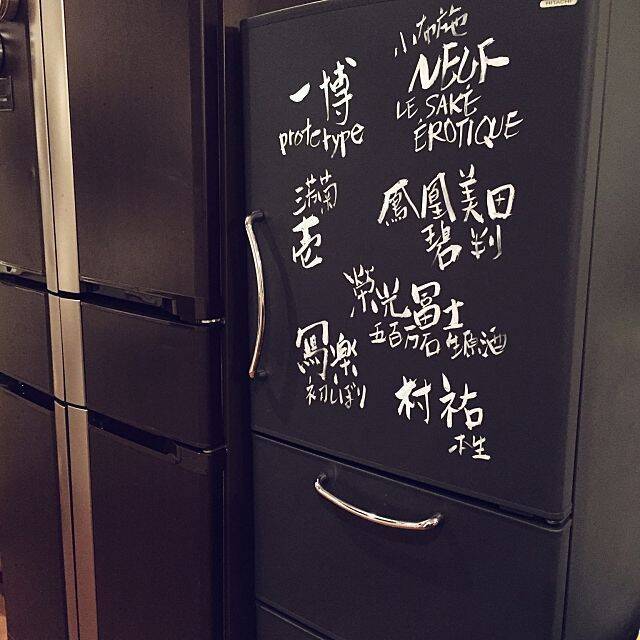 HITACHI
小布施
NEUF
LE SAKÉ
ÉROTIQUE
一博
prototype
満菊
壱
鳳凰美田
碧判
榮光冨士
五百万石 生原酒
寫樂
初しぼり
村祐
本生